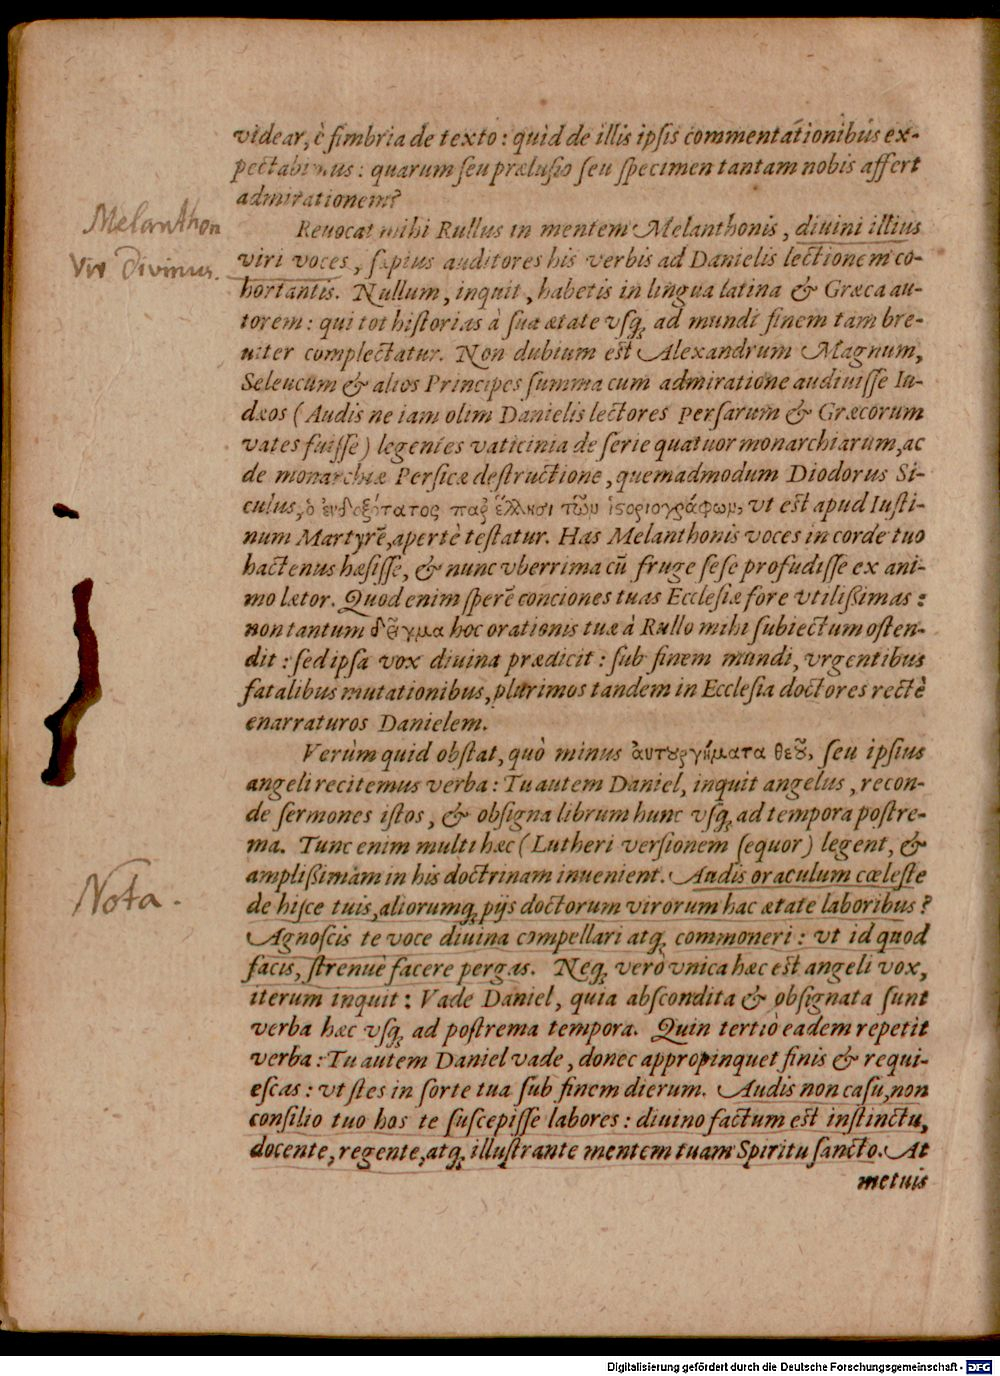 videar, è fimbria de texto: quid de illis ipsis commentationibus ex-
pectabimus: quarum seu prælusio seu specimen tantam nobis affert
admirationem?
Melanthon
Vir Divinus.
Reuocat mihi Rullus in mentem Melanthonis, diuini illius
viri voces, sæpius auditores his verbis ad Danielis lectionem co-
hortantis. Nullum, inquit, habetis in lingua latina & Græca au-
torem: qui tot historias à sua ætate vsq; ad mundi finem tam bre-
uiter complectatur. Non dubium est Alexandrum Magnum,
Seleucum & alios Principes summa cum admiratione audiuisse Iu-
dæos (Audis ne iam olim Danielis lectores Persarum & Græcorum
vates fuisse) legentes vaticinia de serie quatuor monarchiarum, ac
de monarchiæ Persicæ destructione, quemadmodum Diodorus Si-
culus, ὁ ἐνδοξότατος παρ' ἕλλησι τῶν ἱστοριογράφων, vt est apud Iusti-
num Martyrē, apertè testatur. Has Melanthonis voces in corde tuo
hactenus hæsisse, & nunc vberrima cū fruge sese profudisse ex ani-
mo lætor. Quod enim sperē conciones tuas Ecclesiæ fore vtilißimas:
non tantum δεῖγμα hoc orationis tuæ à Rullo mihi subiectum osten-
dit: sed ipsa vox diuina prædicit: sub finem mundi, vrgentibus
fatalibus mutationibus, plurimos tandem in Ecclesia doctores rectè
enarraturos Danielem.
Verùm quid obstat, quò minus αὐτουργήματα θεοῦ, seu ipsius
angeli recitemus verba: Tu autem Daniel, inquit angelus, recon-
de sermones istos, & obsigna librum hunc vsq; ad tempora postre-
ma. Tunc enim multi hæc (Lutheri versionem sequor) legent, &
amplißimam in his doctrinam inuenient. Audis oraculum cæleste
Nota.
de hisce tuis, aliorumq; pijs doctorum virorum hac ætate laboribus?
Agnoscis te voce diuina compellari atq; commoneri: vt id quod
facis, strenuè facere pergas. Neq; verò vnica hæc est angeli vox,
iterum inquit: Vade Daniel, quia abscondita & obsignata sunt
verba hæc vsq; ad postrema tempora. Quin tertiò eadem repetit
verba: Tu autem Daniel vade, donec appropinquet finis & requi-
escas: vt stes in sorte tua sub finem dierum. Audis non casu, non
consilio tuo hos te suscepisse labores: diuino factum est instinctu,
docente, regente, atq; illustrante mentem tuam Spiritu sancto. At
metuis
Digitalisierung gefördert durch die Deutsche Forschungsgemeinschaft - DFG